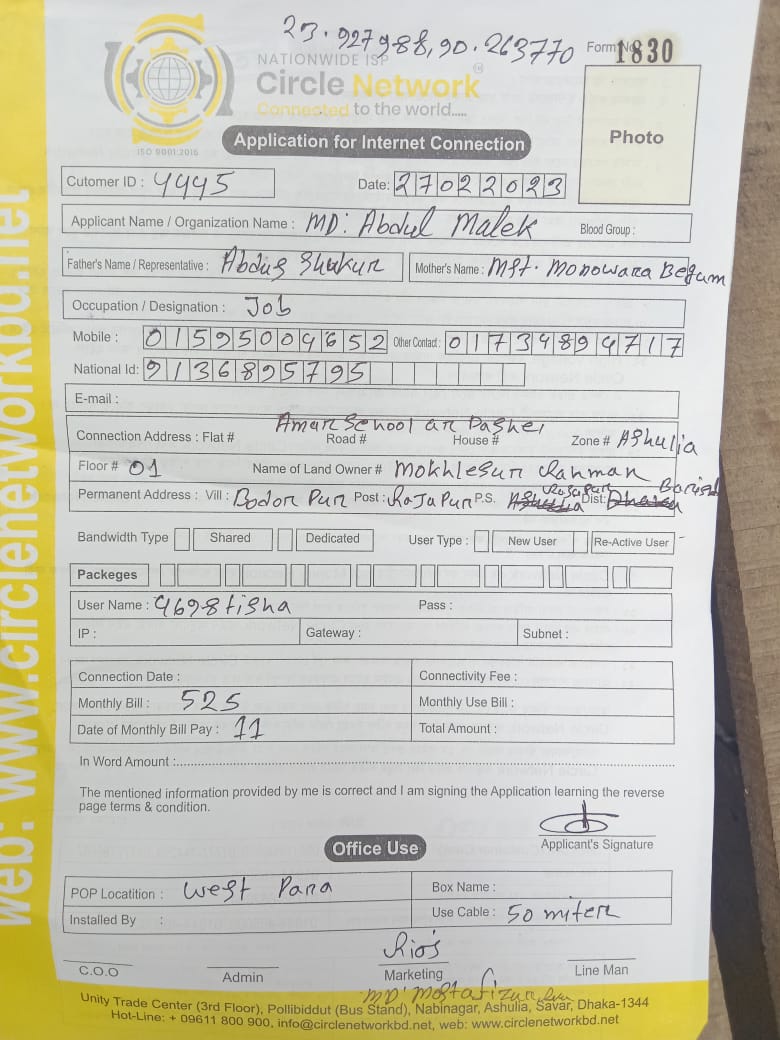 23.927988, 90.263770
Form No 1830
NATIONWIDE ISP
Circle Network
Connected to the world.....
ISO 9001:2015
Application for Internet Connection
Photo
Cutomer ID : 4445
Date: 27022023
Applicant Name / Organization Name : MD: Abdul Malek Blood Group :
Father's Name / Representative : Abdus Shakur Mother's Name : Mst. Monowara Begum
Occupation / Designation : Job
Mobile : 01595004652 Other Contact : 01734894717
National Id: 9136895795
E-mail :
Aman School ar Pashei
Connection Address : Flat # Road # House # Zone # AShulia
Floor # 01 Name of Land Owner # Mokhlesur Rahman
Permanent Address : Vill : Bodor Pur Post : RaJaPur P.S. Dist: Barisal
Bandwidth Type Shared Dedicated User Type : New User Re-Active User
Packeges
User Name : 4698tisha Pass :
IP : Gateway : Subnet :
Connection Date : Connectivity Fee :
Monthly Bill : 525 Monthly Use Bill :
Date of Monthly Bill Pay : 11 Total Amount :
In Word Amount :
The mentioned information provided by me is correct and I am signing the Application learning the reverse
page terms & condition.
Applicant's Signature
Office Use
POP Locatition : West Para Box Name :
Installed By : Use Cable : 50 miter
C.O.O Admin Marketing Line Man
MD: Mostafizur
Unity Trade Center (3rd Floor), Pollibiddut (Bus Stand), Nabinagar, Ashulia, Savar, Dhaka-1344
Hot-Line: + 09611 800 900, info@circlenetworkbd.net, web: www.circlenetworkbd.net
web: www.circlenetworkbd.net